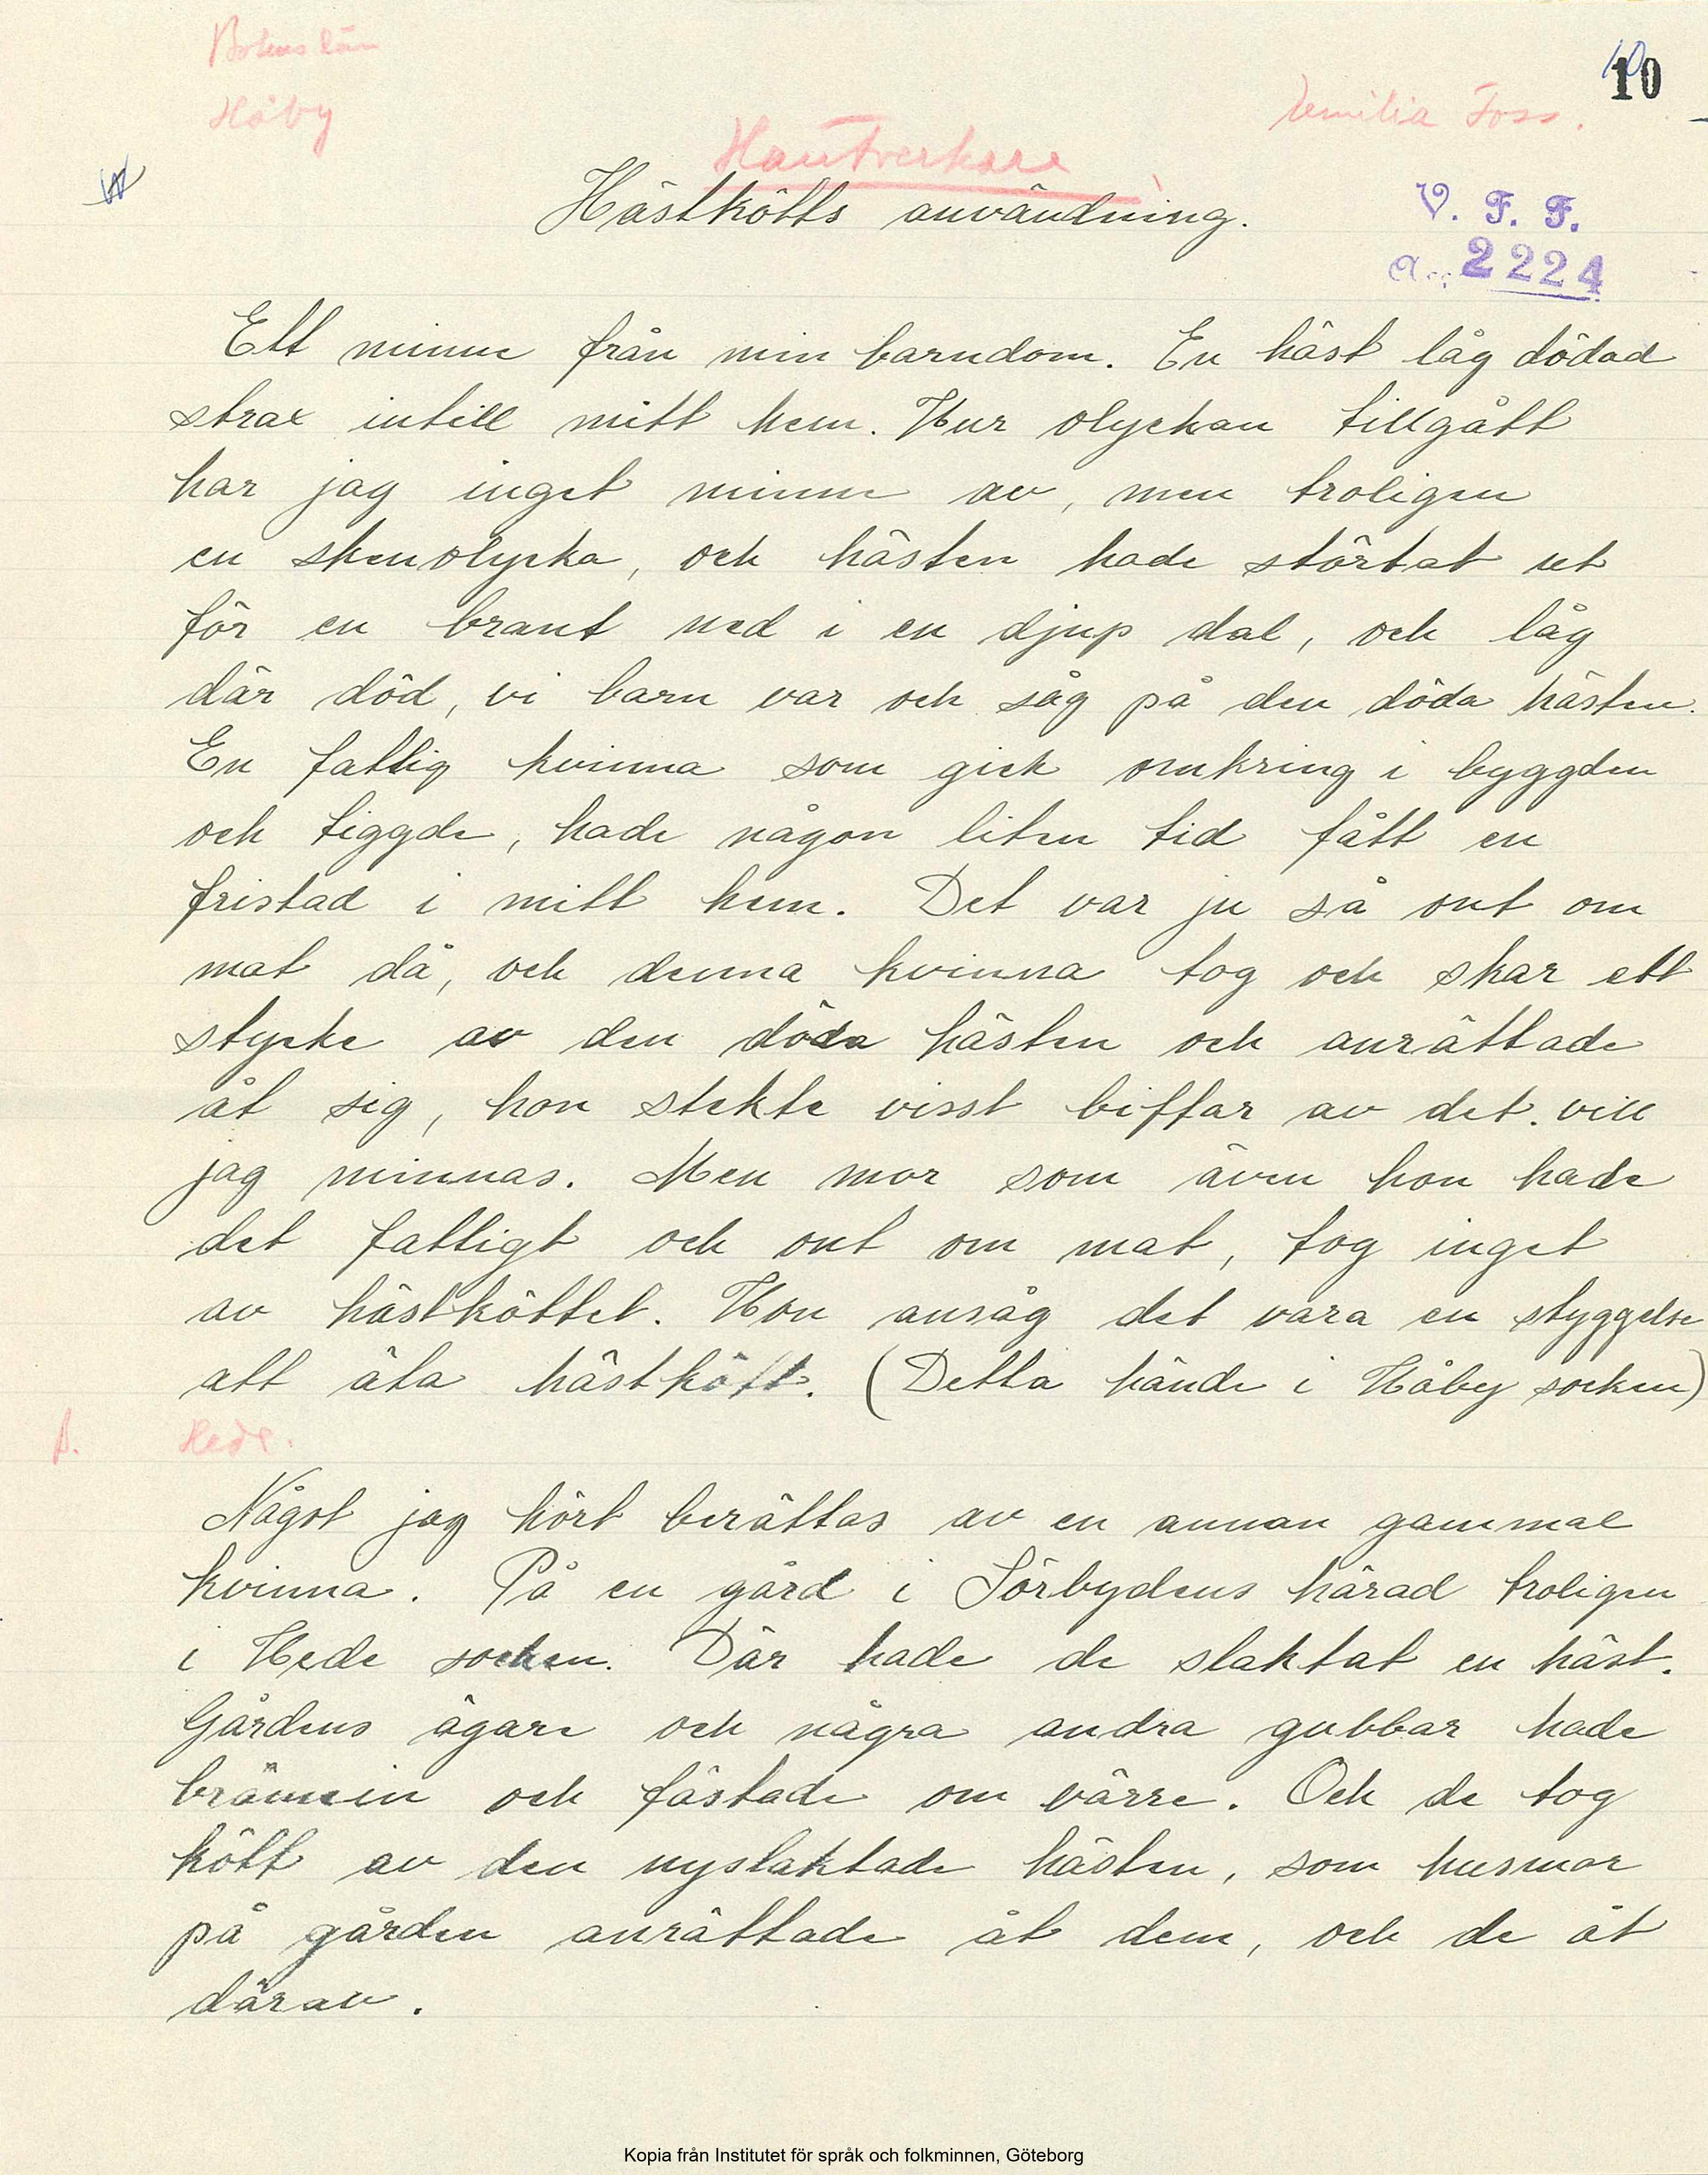 Bohuslän
10
Håby
Emilia Foss.
Hantverkare
Hästkötts användning.
V. F. F.
Acc. 2224
Ett minne från min barndom. En häst låg dödad
strax intill mitt hem. Hur olyckan tillgått
har jag inget minne av, men troligen
en skenolycka, och hästen hade störtat ut
för en brant ned i en djup dal, och låg
där död, vi barn var och såg på den döda hästen.
En fattig kvinna som gick omkring i byggden
och tiggde, hade någon liten tid fått en
fristad i mitt hem. Det var ju så ont om
mat då, och denna kvinna tog och skar ett
stycke av den döda hästen och anrättade
åt sig, hon stekte visst biffar av det. vill
jag minnas. Men mor som även hon hade
det fattigt och ont om mat, tog inget
av hästköttet. Hon ansåg det vara en styggelse
att äta hästkött. (Detta hände i Håby socken)
Hede.
Något jag hört berättas av en annan gammal
kvinna. På en gård i Sörbydens härad troligen
i Hede socken. Där hade de slaktat en häst.
Gårdens ägare och några andra gubbar hade
brännvin och fästade om värre. Och de tog
kött av den nyslaktade hästen, som husmor
på gården anrättade åt dem, och de åt
därav.
Kopia från Institutet för språk och folkminnen, Göteborg